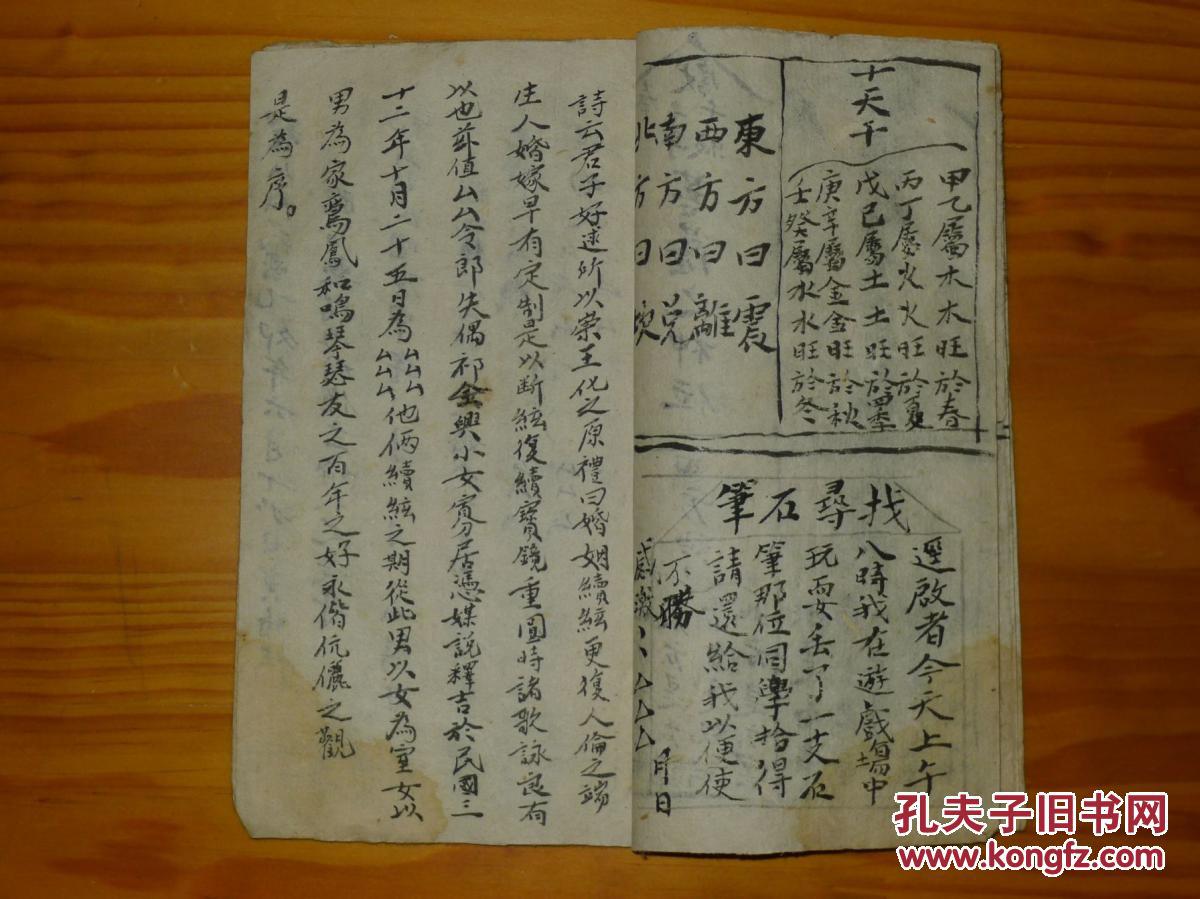 十天干
甲乙屬木木旺於春
丙丁屬火火旺於夏
戊己屬土土旺於四季
庚辛屬金金旺於秋
壬癸屬水水旺於冬
東方曰震
西方曰離
南方曰兌
北方曰坎
找尋石筆
逕啟者今天上午
八時我在遊戲場中
玩耍丟了一支石
筆那位同學拾得
請還給我以便使
不勝
感激 厶厶厶 月日
詩云君子好逑所以榮王化之原禮曰婚姻續絃更復人倫之端
生人婚嫁早有定制是以斷絃復續寶鏡重圓時諸歌詠良有
以也茲值厶厶令郎失偶祁金興小女寡居憑媒說釋吉於民國三
十二年十月二十五日為厶厶厶厶厶厶他倆續絃之期從此男以女為室女以
男為家鸞鳳和鳴琴瑟友之百年之好永偕伉儷之觀
是為序。
孔夫子旧书网
www.kongfz.com